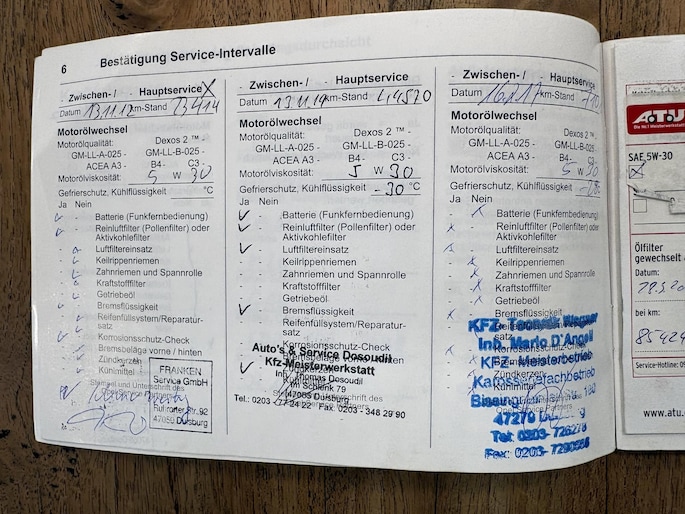 6 Bestätigung Service-Intervalle
Zwischen-/ - Hauptservice X
Datum 13.11.12 km-Stand 23414
Motorölwechsel
Motorölqualität: Dexos 2 ™ -
GM-LL-A-025 - GM-LL-B-025 -
ACEA A3 - B4- C3 -
Motorölviskosität: 5 W 30
Gefrierschutz, Kühlflüssigkeit °C
Ja Nein
Batterie (Funkfernbedienung)
Reinluftfilter (Pollenfilter) oder
Aktivkohlefilter
Luftfiltereinsatz
Keilrippenriemen
Zahnriemen und Spannrolle
Kraftstofffilter
Getriebeöl
Bremsflüssigkeit
Reifenfüllsystem/Reparatur-
satz
Korrosionsschutz-Check
Bremsbeläge vorne / hinten
Zündkerzen
Kühlmittel
FRANKEN
Service GmbH
Ruhrorter Str. 92
47059 Duisburg
Zwischen-/ - Hauptservice
Datum 13.11.14 km-Stand 44570
Motorölwechsel
Motorölqualität: Dexos 2 ™ -
GM-LL-A-025 - GM-LL-B-025 -
ACEA A3 - B4- C3 -
Motorölviskosität: 5 W 30
Gefrierschutz, Kühlflüssigkeit -30 °C
Ja Nein
Batterie (Funkfernbedienung)
Reinluftfilter (Pollenfilter) oder
Aktivkohlefilter
Luftfiltereinsatz
Keilrippenriemen
Zahnriemen und Spannrolle
Kraftstofffilter
Getriebeöl
Bremsflüssigkeit
Reifenfüllsystem/Reparatur-
satz
Korrosionsschutz-Check
Auto's & Service Dosoudil
Kfz-Meisterwerkstatt
Inh. Thomas Dosoudil
Im Schlenk 79
47055 Duisburg
Fax: 0203 - 348 29 90
Zwischen-/ - Hauptservice
Datum km-Stand
Motorölwechsel
Motorölqualität: Dexos 2 ™ -
GM-LL-A-025 - GM-LL-B-025 -
ACEA A3 - B4- C3 -
Motorölviskosität: 5 W 30
Gefrierschutz, Kühlflüssigkeit °C
Ja Nein
Batterie (Funkfernbedienung)
Reinluftfilter (Pollenfilter) oder
Aktivkohlefilter
Luftfiltereinsatz
Keilrippenriemen
Zahnriemen und Spannrolle
Kraftstofffilter
Getriebeöl
Bremsflüssigkeit
KFZ-
Inh. Mario D'Angeli
KFZ-Meisterbetrieb
Karosseriefachbetrieb
47279
Tel: 0203-
Fax: 0203-
A.T.U
Die Nr.1 Meisterwerkstatt
SAE 5W-30
Ölfilter
gewechselt
Datum:
bei km:
85424
Service-Hotline:
www.atu.